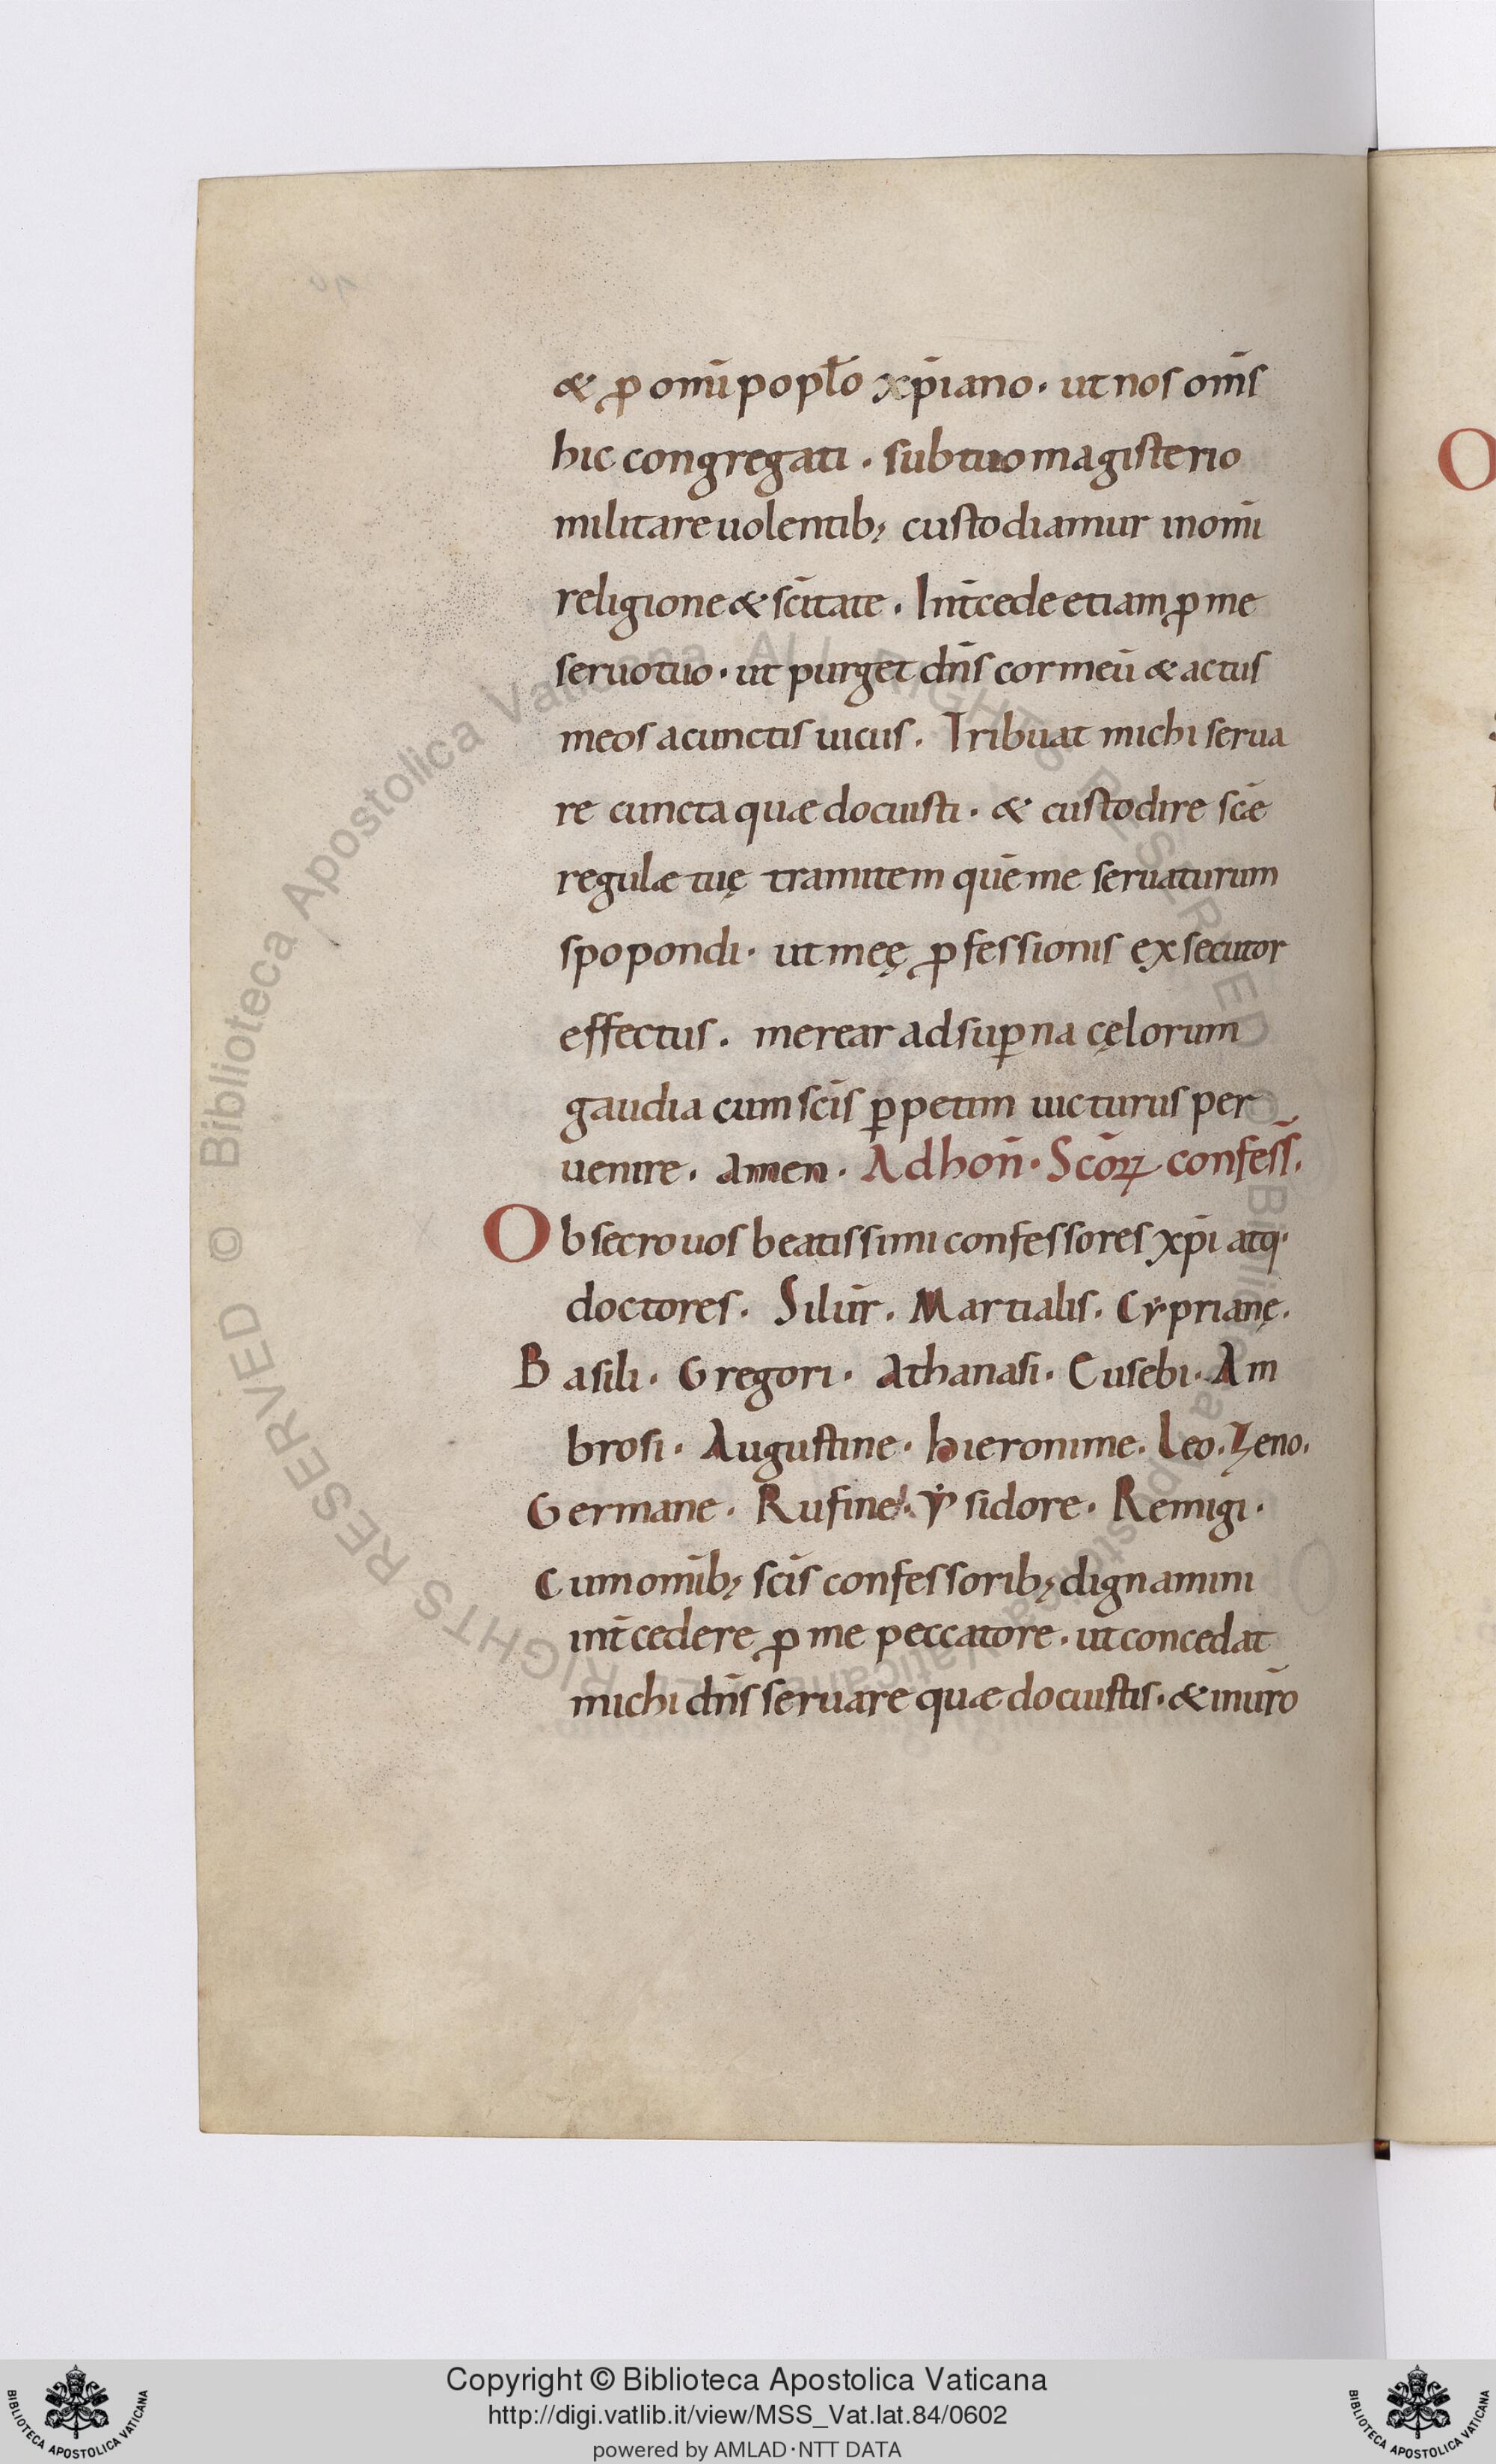 & ꝓ om̄i popłо xp̄iano. ut nos om̄s
hic congregati. sub tuo magisterio
militare uolentib; custodiamur in om̄i
religione & sc̄itate. Int̄cede etiam ꝓ me
seruo tuo. ut purget dn̄s cor meū & actus
meos a cunctis uiciis. Tribuat michi serua
re cuncta quæ docuisti. & custodire sc̄æ
regulæ tuę tramitem quē me seruaturum
spopondi. ut meę ꝓfessionis exsecutor
effectus. merear ad suꝑna cęlorum
gaudia cum sc̄is ꝑpetim uicturus per
uenire. Amen. Ad hon̄. Sc̄oꝝ confess̄.
Obsecro uos beatissimi confessores xp̄i atq·
doctores. Siluīr. Martialis. Cẏprianę.
Basili. Gregori. Athanasi. Eusebi. Am
brosi. Augustine. hieronime. Leo. Zeno.
Germane. Rufine. Ẏsidore. Remigi.
Cum om̄ib; sc̄is confessorib; dignamini
int̄cedere ꝓ me peccatore. ut concedat
michi dn̄s seruare quæ docuistis. & in ur̄o
Copyright © Biblioteca Apostolica Vaticana
http://digi.vatlib.it/view/MSS_Vat.lat.84/0602
powered by AMLAD·NTT DATA
BIBLIOTECA APOSTOLICA VATICANA
BIBLIOTECA APOSTOLICA VATICANA
© Biblioteca Apostolica Vaticana ALL RIGHTS RESERVED
© Biblioteca Apostolica Vaticana ALL RIGHTS RESERVED
O